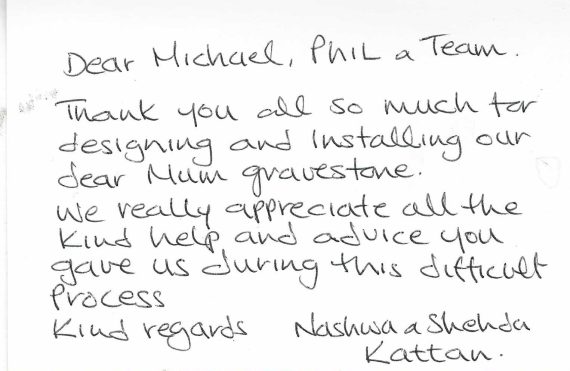 Dear Michael, Phil & Team.
Thank you all so much for
designing and installing our
dear Mum gravestone.
We really appreciate all the
kind help and advice you
gave us during this difficult
process
Kind regards Nashwa & Shehda
Kattan.